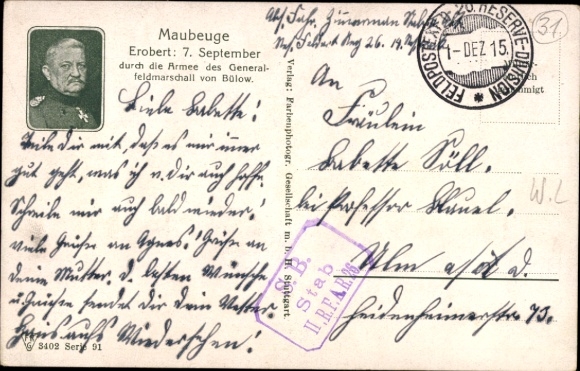 Maubeuge
Erobert: 7. September
durch die Armee des General-
feldmarschall von Bülow.
Liebe Babette!
Teile Dir mit, daß es mir immer
gut geht, was ich v. Dir auch hoffe.
Schreibe mir auch bald wieder!
viele Grüße an Agnes! Grüße an
Deine Mutter. D. besten Wünsche
u. Grüße sendet Dir Dein Vetter
Hans aufs Wiedersehen!
3402 Serie 91
Verlag: Farbenphotogr. Gesellschaft m. b. H. Stuttgart
Abs. Fahr.
Res. Feldart Reg 26.
FELDPOSTEXP. 26. RESERVE-DIVISION
1-DEZ 15.
31.
An
Fräulein
Babette Söll.
bei Professor
Ulm a/d D.
Heidenheimerstr 73.
W.L
S. B.
Stab
II R.F.A.R. 26